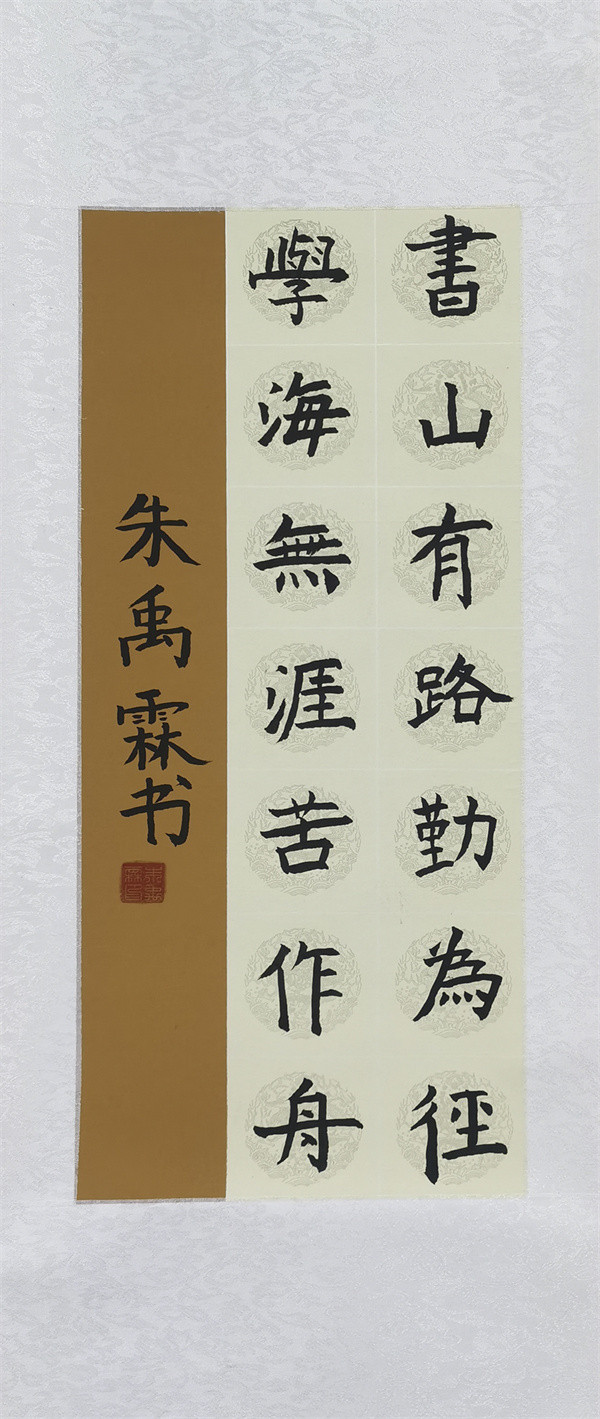 書山有路勤為徑
學海無涯苦作舟
朱禹霖书